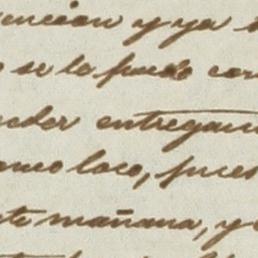 ención y ya
o se lo puedo con
ceder entregan
como loco, pues
te mañana, y